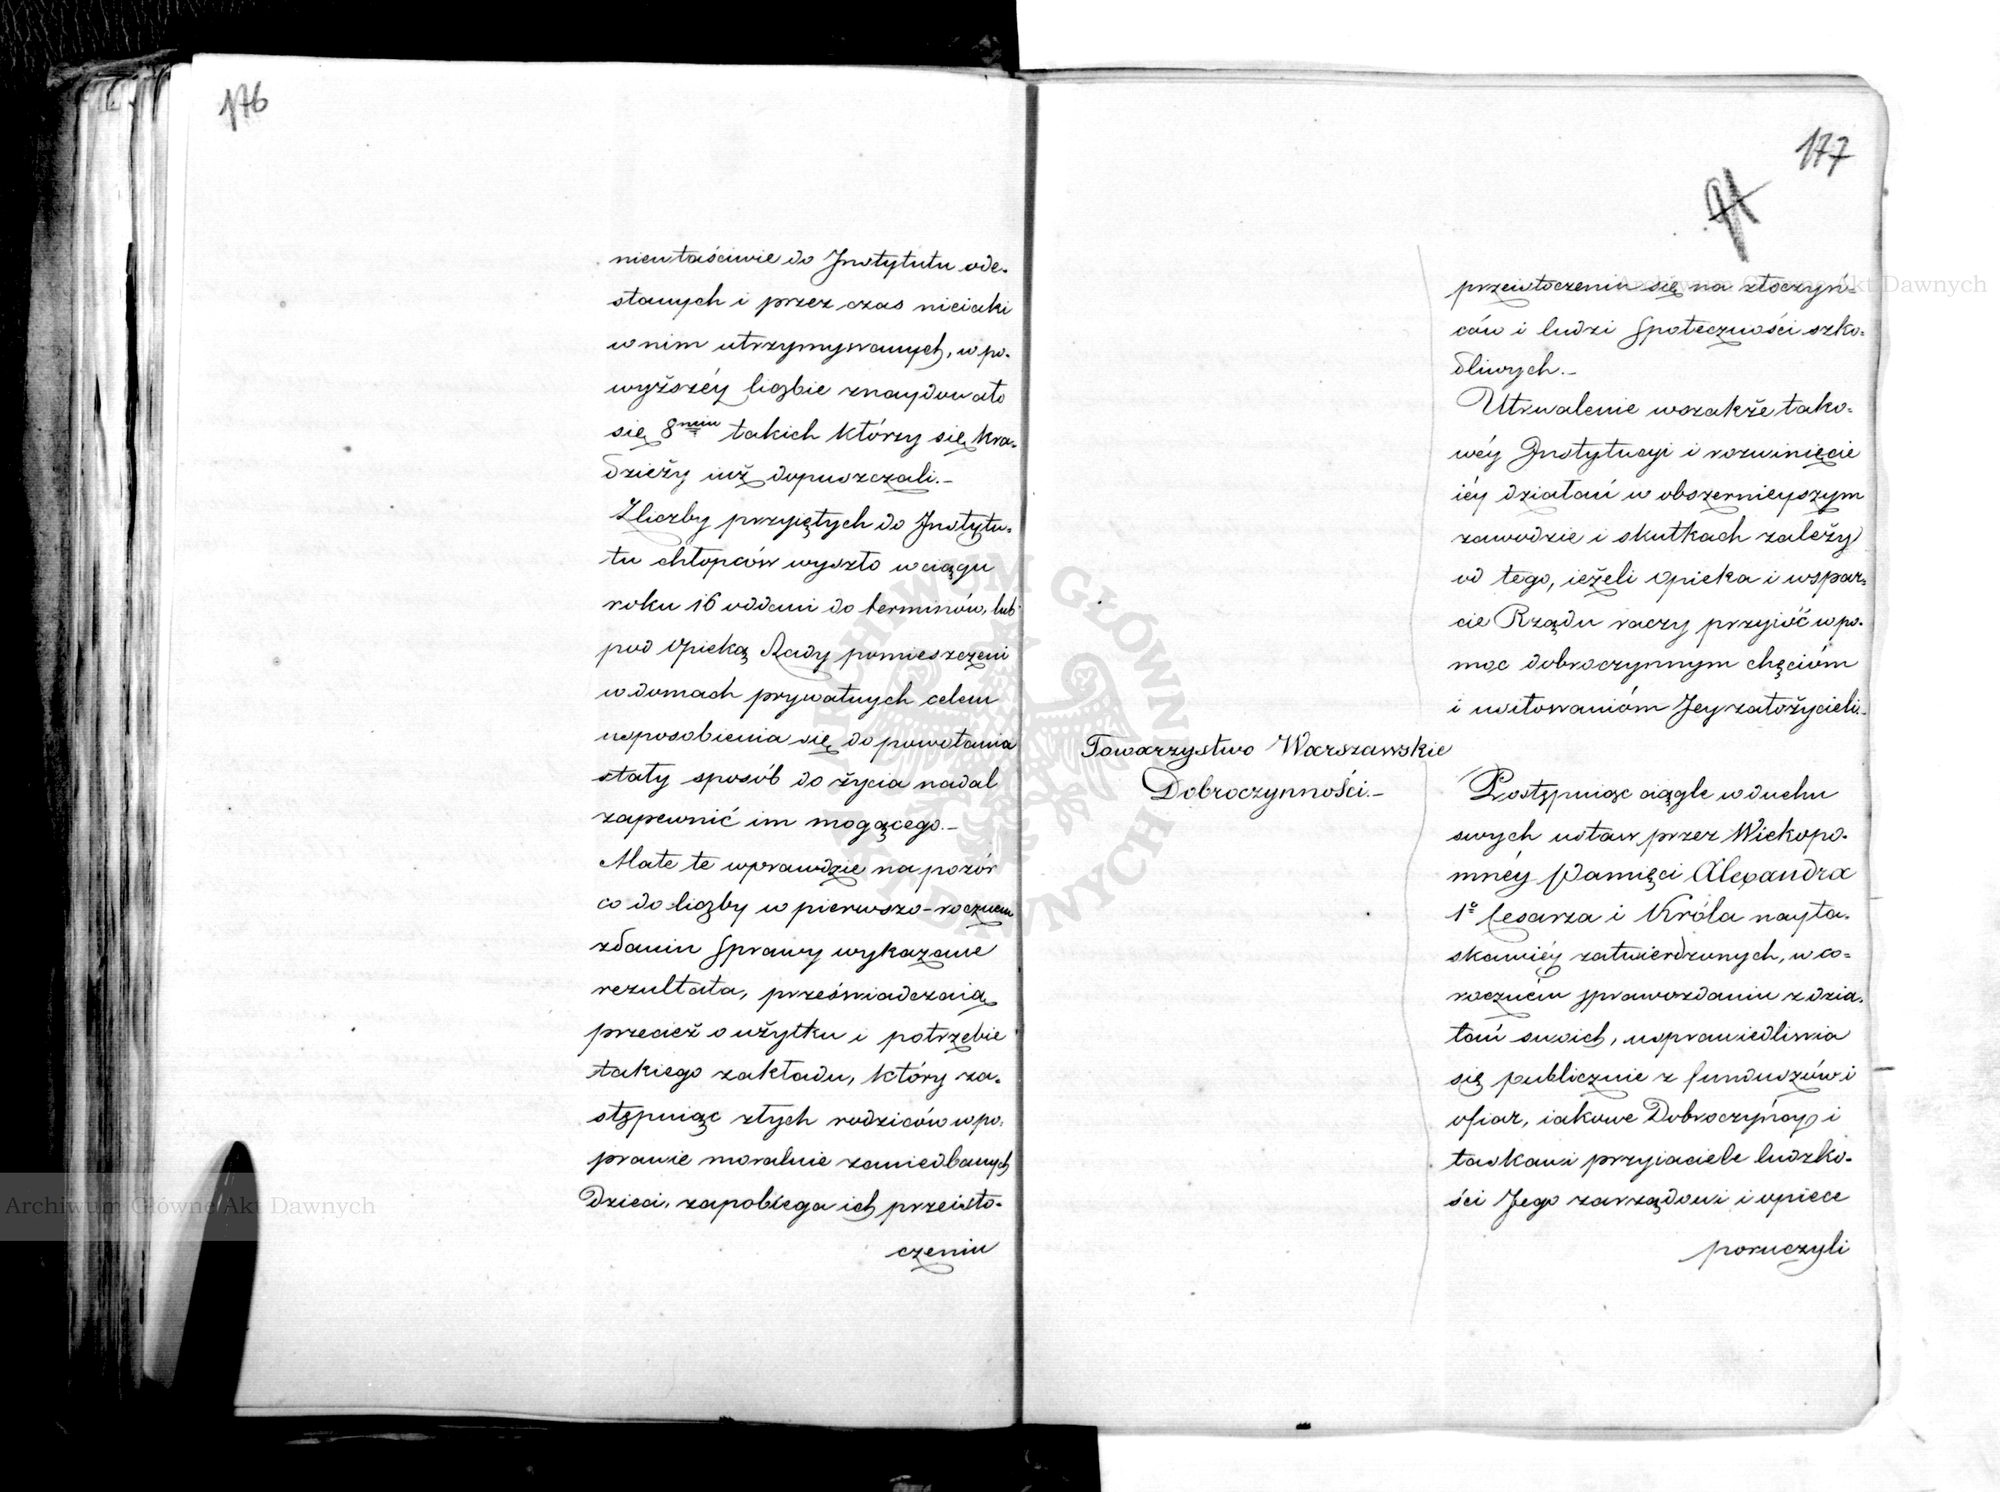 176
niewłaściwie do Jnstytutu ode-
słanych i przez czas nieiaki
w nim utrzymywanych, w po-
wyższéy liczbie znaydowało
się 8miu takich którzy się kra-
dzieży iuż dopuszczali.-
Z liczby przyiętych do Jnstytu-
tu chłopców wyszło w ciągu
roku 16 oddani do terminów, lub
pod Opieką Rady pomieszczeni
w domach prywatnych celem
usposobienia się do powołania
stały sposób do życia nadal
zapewnić im mogącego.-
Małe te wprawdzie na pozór
co do liczby w pierwszo-rocznem
zdaniu sprawy wykazane
rezultata, przeświadczaią
przecież o użytku i potrzebie
takiego zakładu, który za-
stępuiąc złych rodziców w po-
prawie moralnie zaniedbanych
Dzieci, zapobiega ich przeisto-
czeniu
177
przeistoczeniu się na złoczyń-
ców i ludzi społeczności szko-
dliwych.-
Utrwalenie wszakże tako-
wéy Jnstytucyi i rozwinięcie
iéy działań w obszernieyszym
zawodzie i skutkach zależy
od tego, ieżeli opieka i wspar-
cie Rządu raczy przyiść w po-
moc dobroczynnym chęcióm
i usiłowanióm Jey założycieli.-
Towarzystwo Warszawskie
Dobroczynności.-
Postępuiąc ciągle w duchu
swych ustaw przez Wiekopo-
mnéy Pamięci Alexandra
1o Cesarza i Króla nayła-
skawiéy zatwierdzonych, w co-
roczném sprawozdaniu z dzia-
łań swoich, usprawiedliwia
się publicznie z funduszów i
ofiar, iakowe Dobroczyńcy i
łaskawi przyiaciele ludzko-
ści Jego zarządowi i opiece
poruczyli
Archiwum Główne Akt Dawnych
Archiwum Główne Akt Dawnych
ARCHIWUM GŁÓWNE AKT DAWNYCH